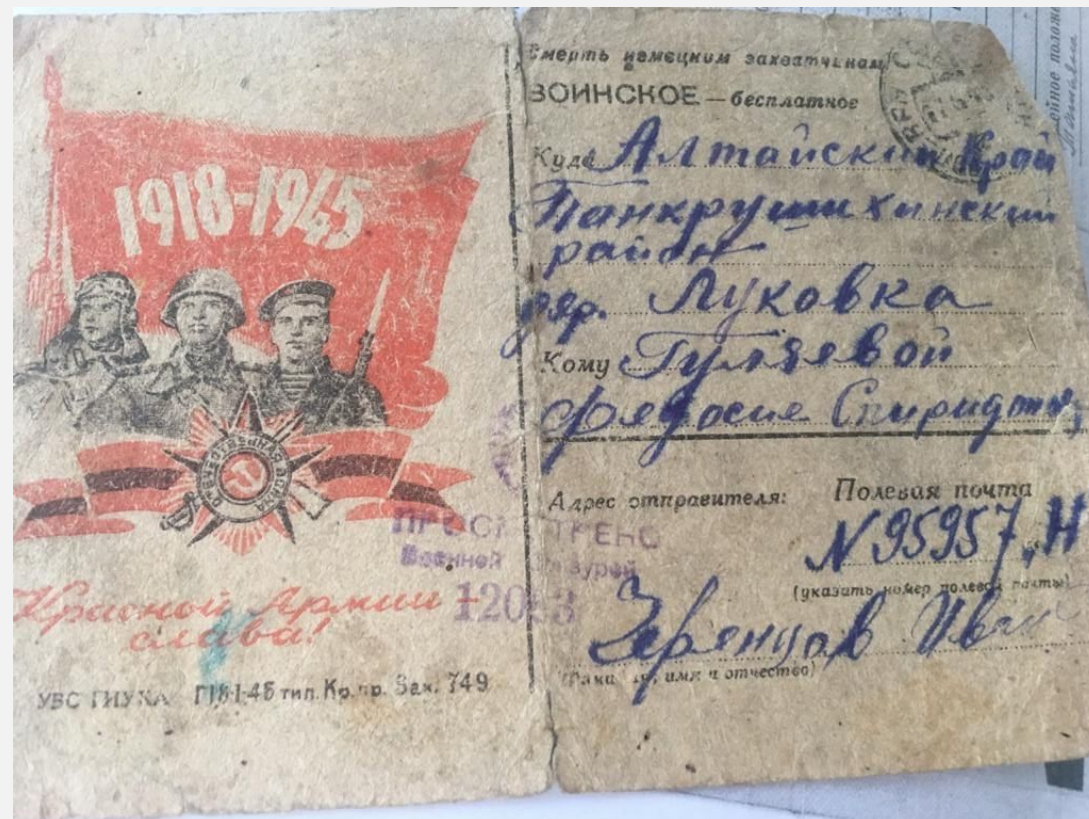 1918-1945
Красной Армии
слава!
Г18-1-45 тип. Кр. пр. Зак. 749
ПРОСМОТРЕНО
Военной Цензурой
12053
Смерть немецким захватчикам
ВОИНСКОЕ — бесплатное
Куда Алтайский край
Панкрушихинский
район
дер. Луковка
Кому Гуляевой
Федосие
Адрес отправителя: Полевая почта
N 95957 "Н
(указать номер полевой почты)
Иван
(Фамилия, имя и отчество)